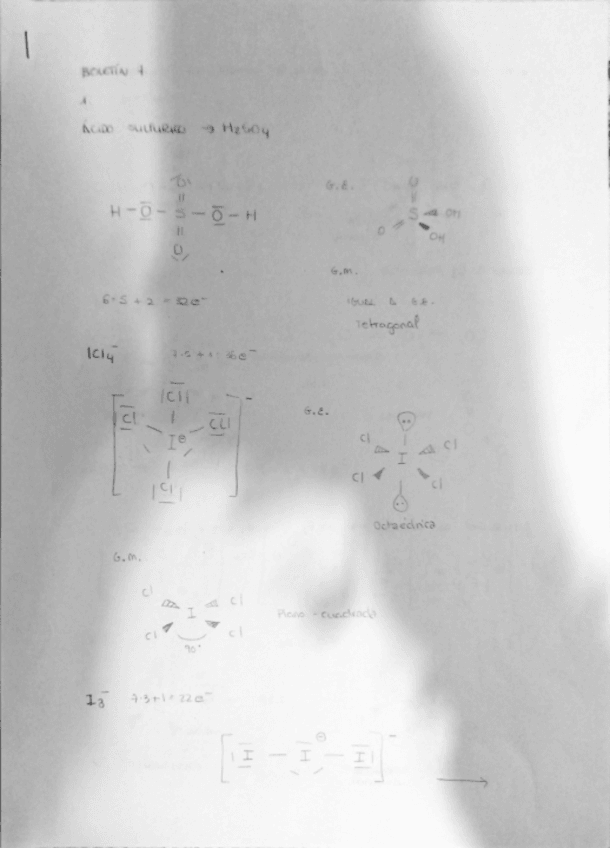 1
BOLETÍN 1
1
ÁCIDO SULFÚRICO → H2SO4
O
H - O - S - O - H
O
G.E.
O
S
OH
O
OH
G.M.
Igual a G.E.
Tetragonal
6·5 + 2 = 32e⁻
ICl4⁻
7·5+1=36e⁻
Cl
Cl
Cl
I⊕
Cl
G.E.
Cl
Cl
I
Cl
Cl
Octaédrica
G.M.
Cl
Cl
I
Cl
Cl
90°
Plano-cuadrada
I3⁻
7·3+1=22e⁻
[I - I⊖ - I]⁻ →